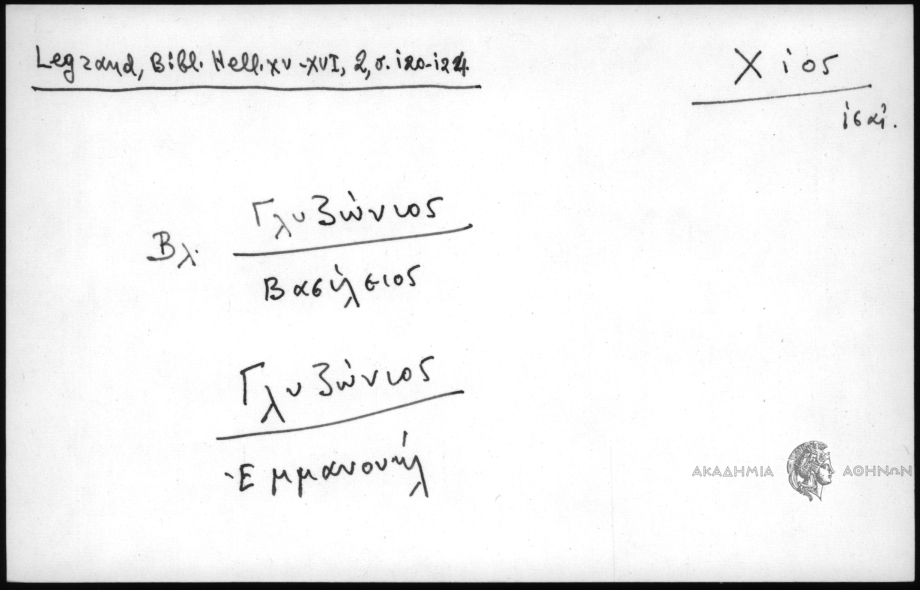 Legrand, Bibl. Hell. XV-XVI, 2, σ. 120-124
Χίος
ις αἰ.
Βλ. Γλυζώνιος
Βασίλειος
Γλυζώνιος
Ἐμμανουήλ
ΑΚΑΔΗΜΙΑ ΑΘΗΝΩΝ